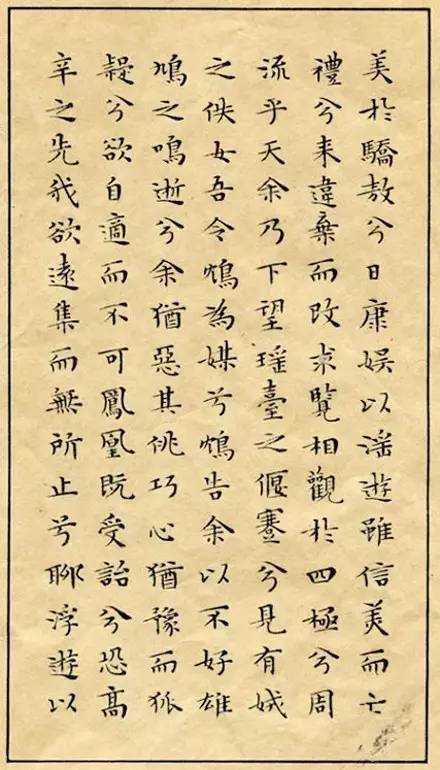 美於驕敖兮日康娛以滛遊雖信美而亡
禮兮来違棄而改求覽相觀於四極兮周
流乎天余乃下望瑶臺之偃蹇兮見有娀
之佚女吾令鴆為媒兮鴆告余以不好雄
鳩之鳴逝兮余猶惡其佻巧心猶豫而狐
疑兮欲自適而不可鳳凰既受詒兮恐高
辛之先我欲遠集而無所止兮聊浮遊以